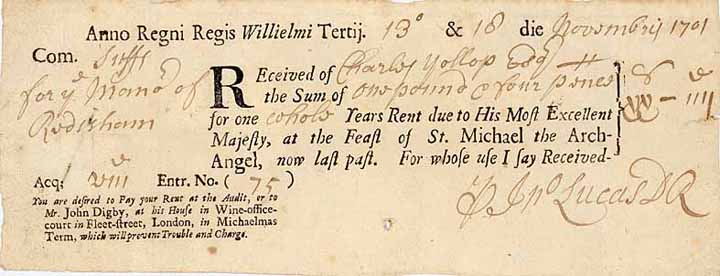 Anno Regni Regis Willielmi Tertij. 13° & 18 die Novembris 1701
Com. Suff
for yᵉ Manoʳ of
Redisham
REceived of Charles Yollop Esqʳ
the Sum of one pound & four pence
for one whole Years Rent due to His Most Excellent
Majesty, at the Feast of St. Michael the Arch-
Angel, now last past. For whose use I say Received-
xx – iiii
Acq; viii Entr. No. (75)
Jnº Lucas DR
You are desired to Pay your Rent at the Audit, or to
Mr. John Digby, at his House in Wine-office-
court in Fleet-street, London, in Michaelmas
Term, which will prevent Trouble and Charge.